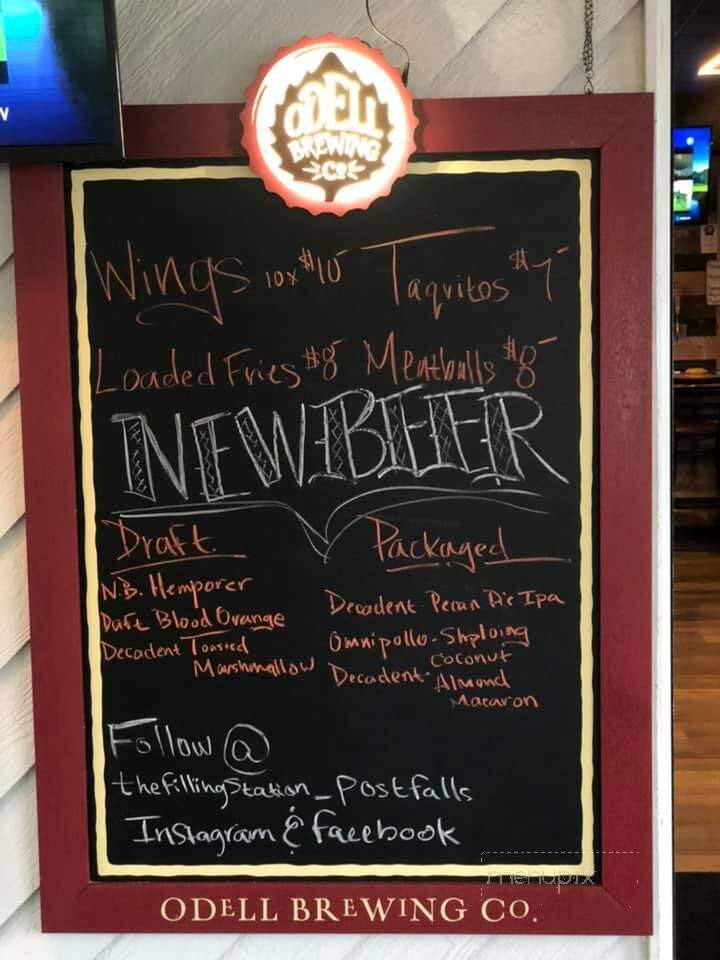 ODELL
BREWING
CO
Wings 10x $10 Taquitos $7
Loaded Fries $8 Meatballs $8
NEW BEER
Draft Packaged
N.B. Hemporer
Daft Blood Orange
Decadent Toasted
Marshmallow
Decadent. Pecan Pie Ipa
Omnipollo. Shploing
Coconut
Decadent. Almond
Macaron
Follow @
thefillingStation_postfalls
Instagram & facebook
menupix
ODELL BREWING CO.